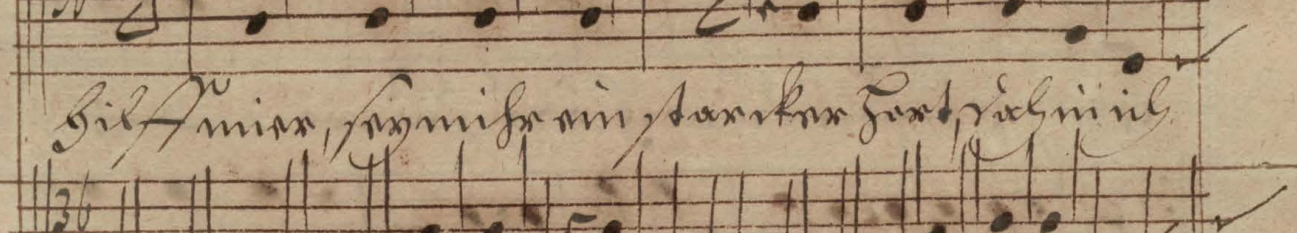 hilff mier, sey mihr ein starcker Hort, dahin ich
36